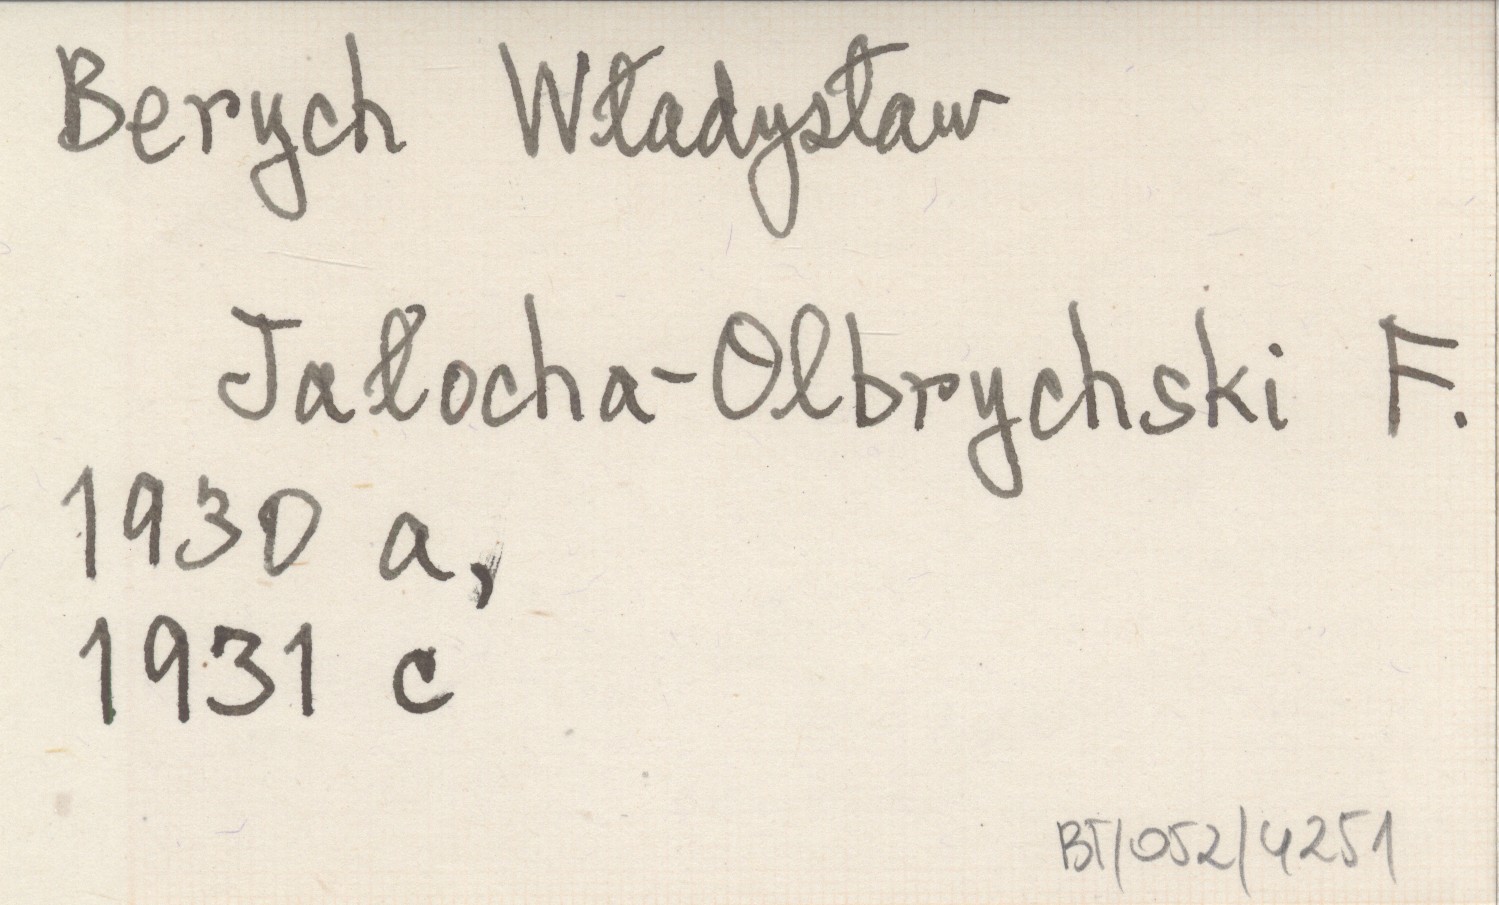 Berych Władysław
Jałocha-Olbrychski F.
1930 a,
1931 c
BT/052/4251